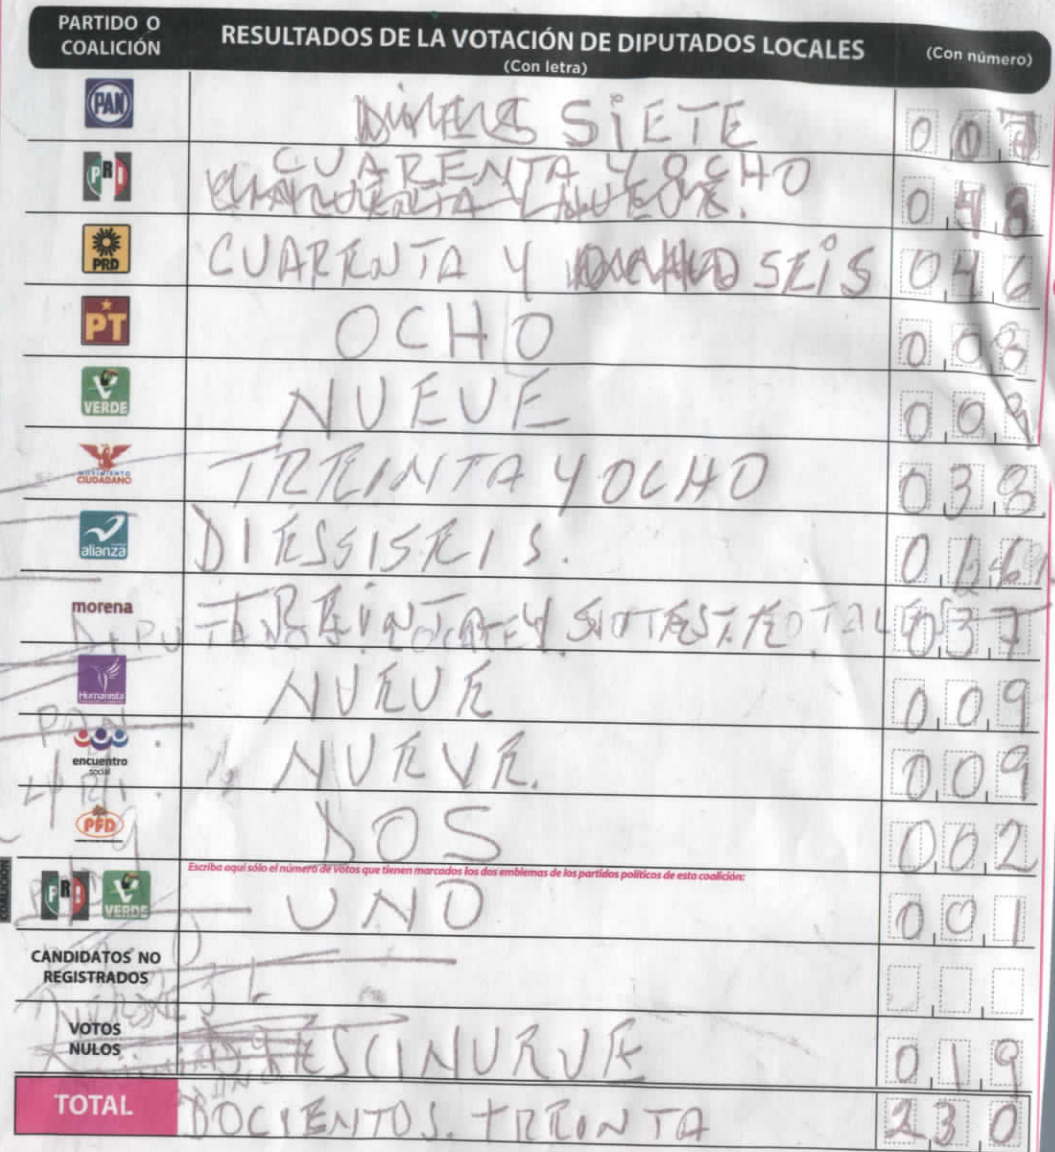 PARTIDO O COALICIÓN RESULTADOS DE LA VOTACIÓN DE DIPUTADOS LOCALES (Con letra) (Con número)
PAN SIETE 0 0 7
PRI CUARENTA Y OCHO 0 4 8
PRD CUARENTA Y SEIS 0 4 6
PT OCHO 0 0 8
VERDE NUEVE 0 0
MOVIMIENTO CIUDADANO TREINTA Y OCHO 0 3 8
alianza DIESSISEIS. 0 1 6
morena TREINTA Y 0 3 7
Humanista NUEVE 0 0 9
encuentro social NUEVE. 0 0 9
PFD DOS 0 0 2
Escriba aquí sólo el número de votos que tienen marcados los dos emblemas de los partidos políticos de esta coalición:
COALICIÓN PRI VERDE UNO 0 0 1
CANDIDATOS NO REGISTRADOS
VOTOS NULOS DIESCINUEVE 0 1 9
TOTAL DOCIENTOS. TREINTA 2 3 0